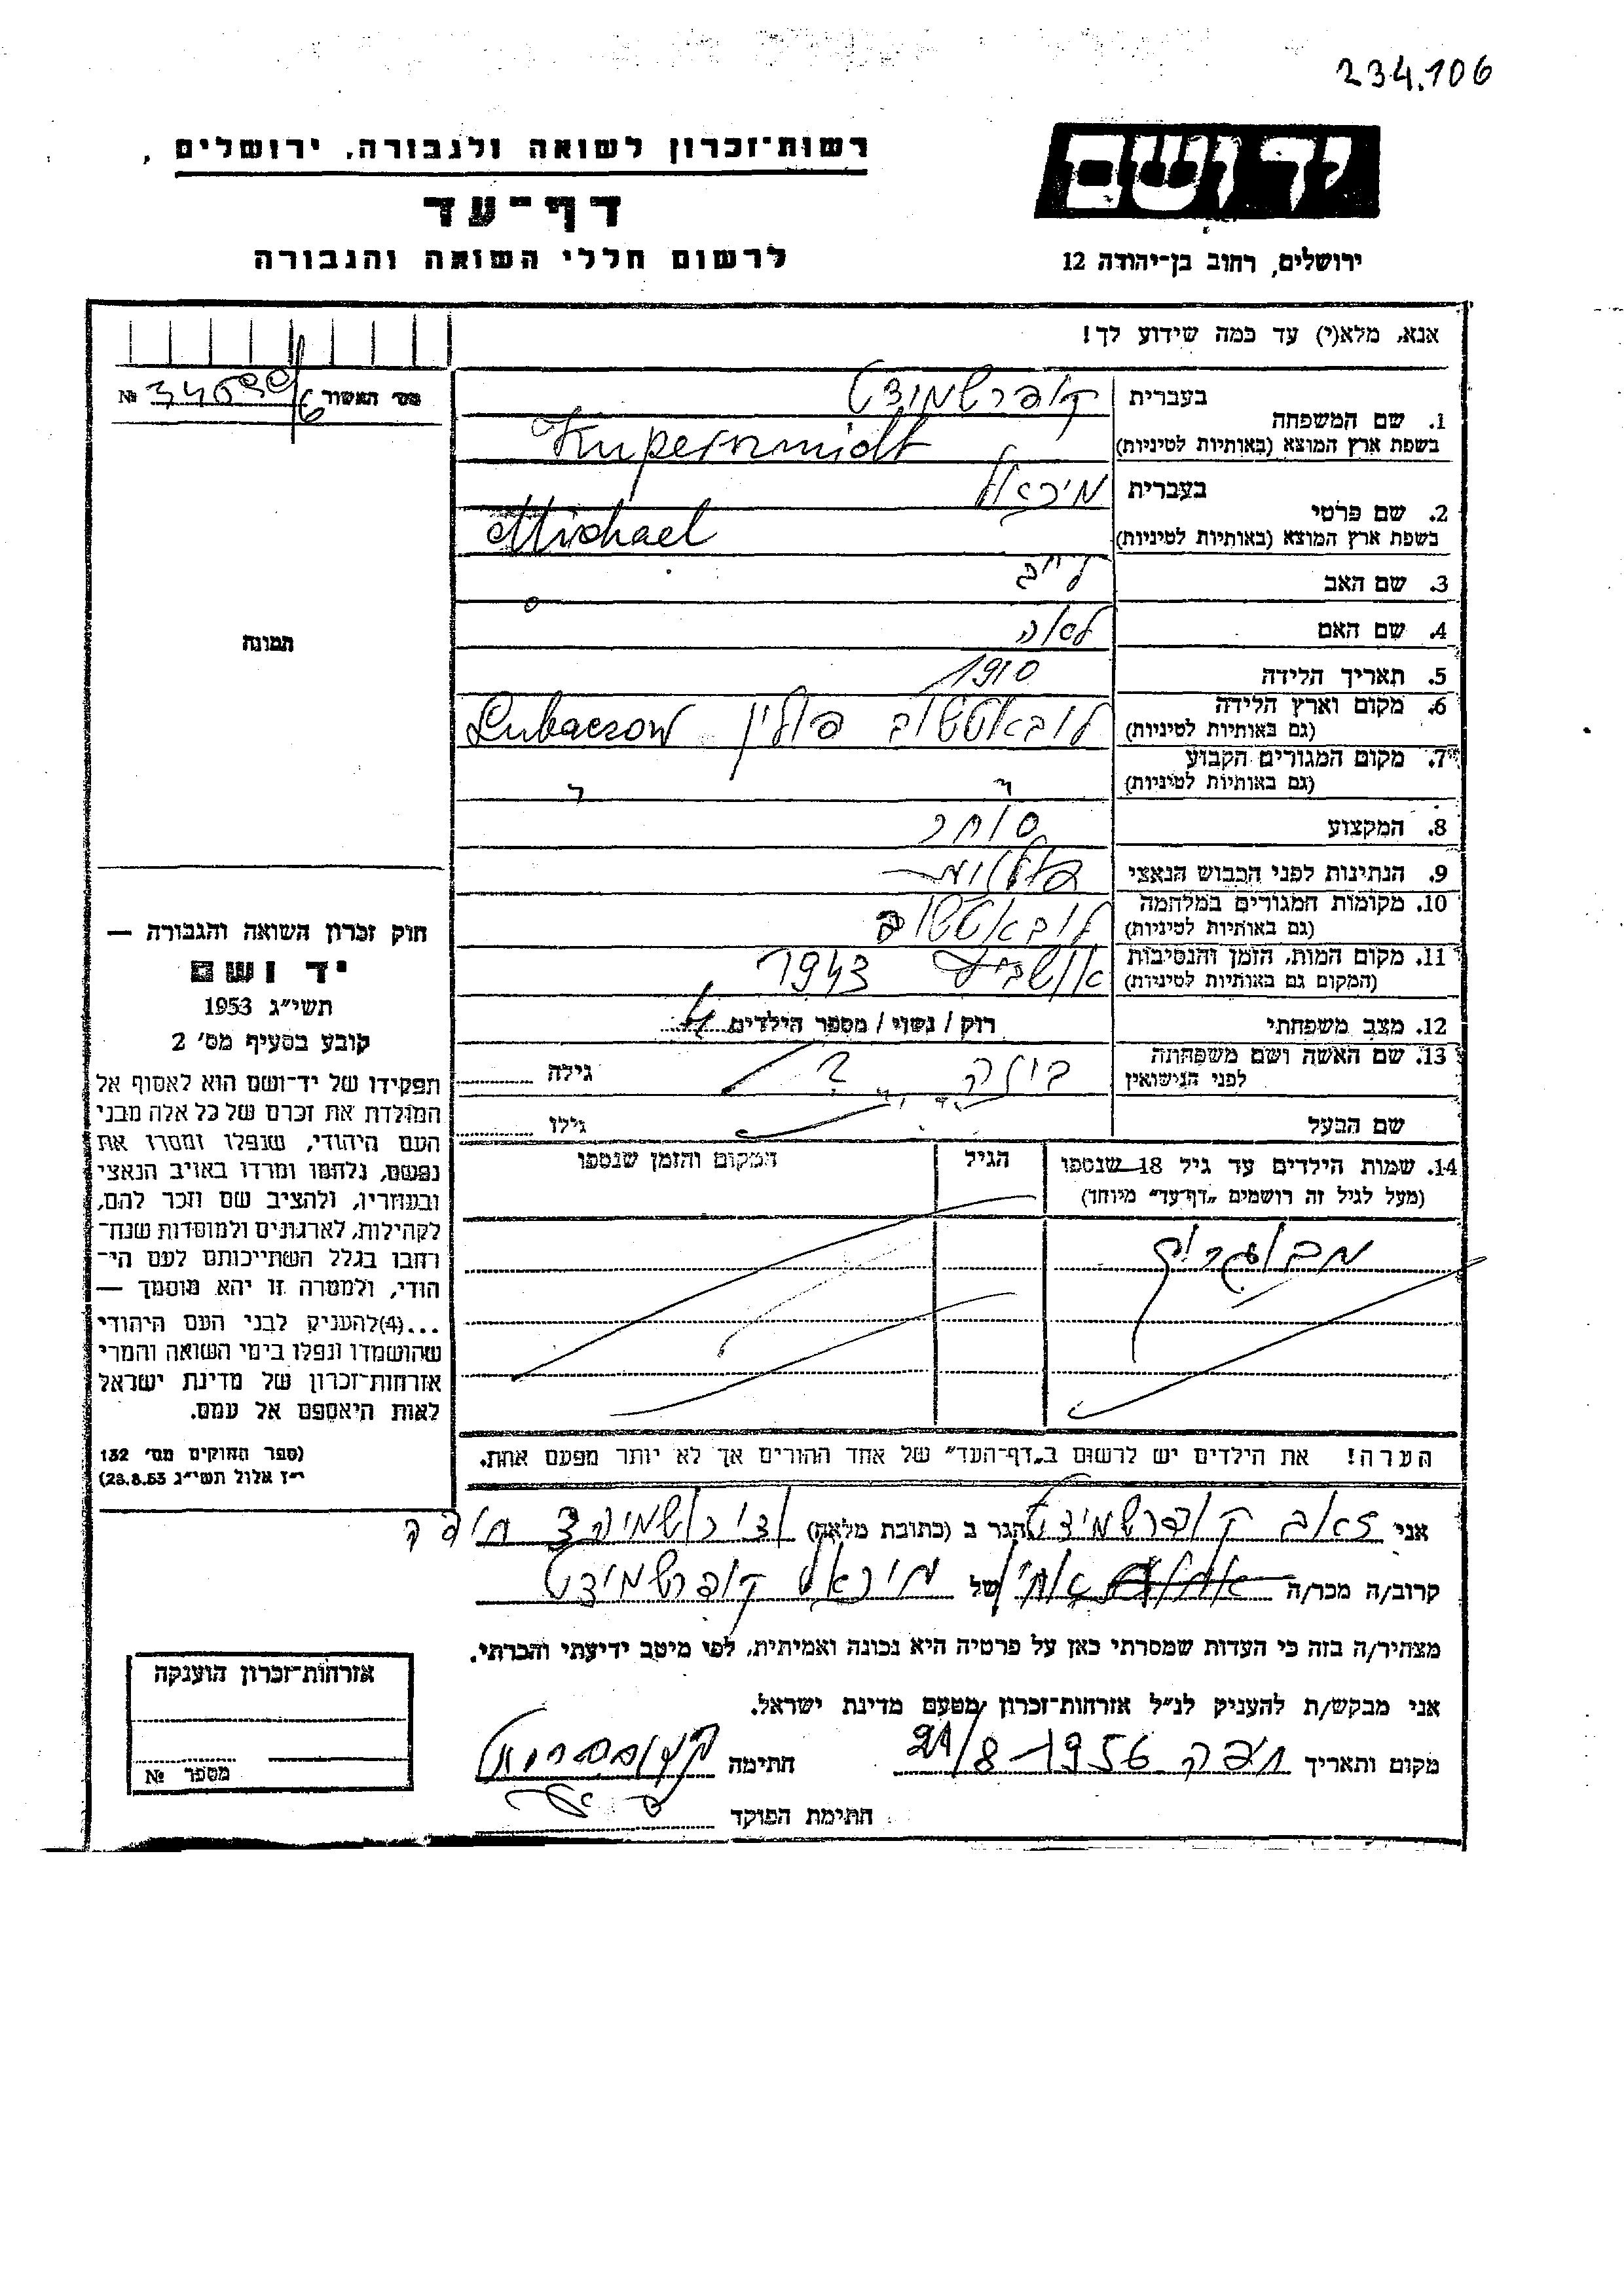 234.106
רשות־זכרון לשואה ולגבורה, ירושלים
דף־עד
לרשום חללי השואה והגבורה
יד ושם
ירושלים, רחוב בן־יהודה 12
אנא, מלא(י) עד כמה שידוע לך!
מס' האשור №
1. שם המשפחה
בעברית קופרשמידט
בשפת ארץ המוצא (באותיות לטיניות) Kuperszmidt
2. שם פרטי
בעברית מיכאל
בשפת ארץ המוצא (באותיות לטיניות) Michael
3. שם האב לייב
4. שם האם לאה
5. תאריך הלידה 1910
6. מקום וארץ הלידה לובאטשוב פולין Lubaczow
(גם באותיות לטיניות)
7. מקום המגורים הקבוע
(גם באותיות לטיניות)
8. המקצוע סוחר
9. הנתינות לפני הכבוש הנאצי
10. מקומות המגורים במלחמה לובאטשוב
(גם באותיות לטיניות)
11. מקום המות, הזמן והנסיבות 1943
(המקום גם באותיות לטיניות)
12. מצב משפחתי רוק / נשוי / מספר הילדים 4
13. שם האשה ושם משפחתה ? גילה
לפני הנישואין
שם הבעל גילו
14. שמות הילדים עד גיל 18 שנספו הגיל המקום והזמן שנספו
(מעל לגיל זה רושמים „דף־עד" מיוחד)
הערה! את הילדים יש לרשום ב„דף־העד" של אחד ההורים אך לא יותר מפעם אחת.
אני זאב קופרשמידט הגר ב (כתובת מלאה) חיפה
קרוב/ה מכר/ה אחי של מיכאל קופרשמידט
מצהיר/ה בזה כי העדות שמסרתי כאן על פרטיה היא נכונה ואמיתית, לפי מיטב ידיעתי והכרתי.
אני מבקש/ת להעניק לנ"ל אזרחות־זכרון מטעם מדינת ישראל.
מקום ותאריך חיפה 21/8 1956 חתימה
חתימת הפוקד
תמונה
חוק זכרון השואה והגבורה —
יד ושם
תשי"ג 1953
קובע בסעיף מס' 2
תפקידו של יד־ושם הוא לאסוף אל
המולדת את זכרם של כל אלה מבני
העם היהודי, שנפלו ומסרו את
נפשם, נלחמו ומרדו באויב הנאצי
ובעוזריו, ולהציב שם וזכר להם,
לקהילות, לארגונים ולמוסדות שנח־
רבו בגלל השתייכותם לעם הי־
הודי, ולמטרה זו יהא מוסמך —
...(4)להעניק לבני העם היהודי
שהושמדו ונפלו בימי השואה והמרי
אזרחות־זכרון של מדינת ישראל
לאות היאספם אל עמם.
(ספר החוקים מס' 132
י"ז אלול תשי"ג 28.8.53)
אזרחות־זכרון הוענקה
מספר №